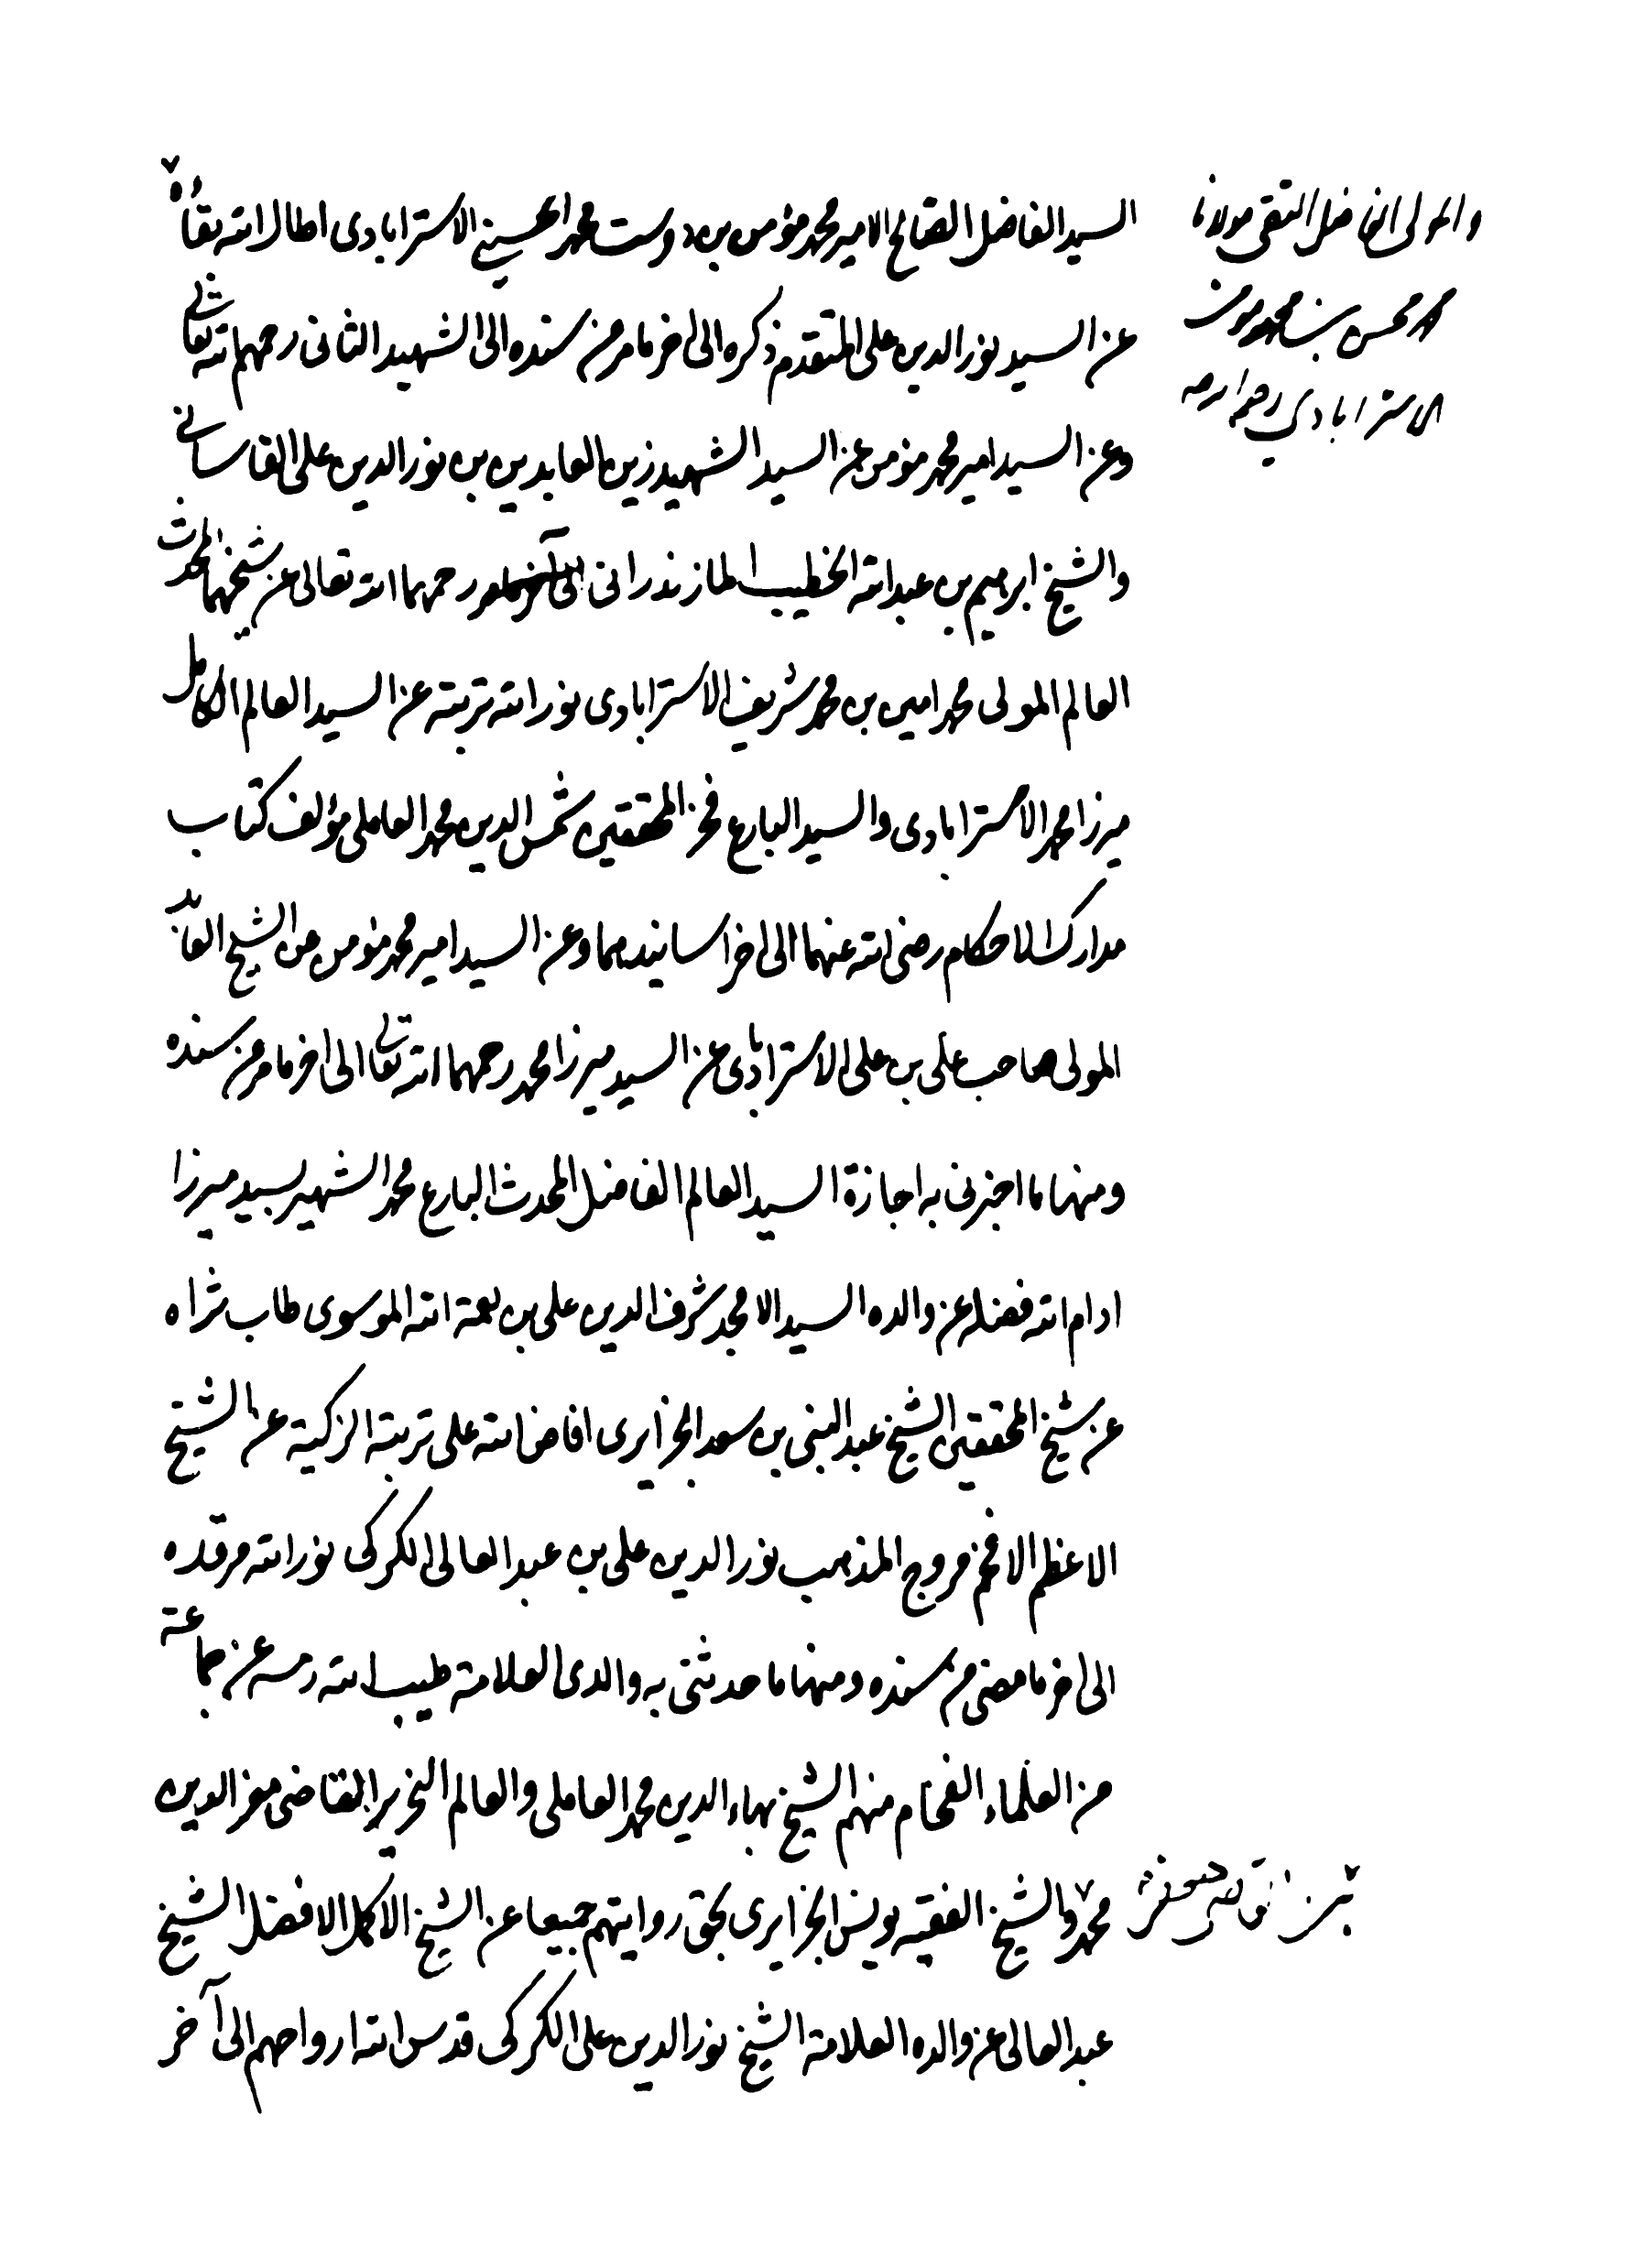 السيد الفاضل الصالح الامير محمد مؤمن بن دوست محمد الحسيني الاسترابادي اطال الله بقاه
والمولى الفاضل التقي مولانا
محمد محسن بن محمد مومن
الاسترابادي رحمه الله
عن السيد نور الدين علي المتقدم ذكره الى اخر ما مر من سنده الى الشهيد الثاني رحمهم الله تعالى
وعن السيد امير محمد مؤمن عن السيد الشهيد زين العابدين بن نور الدين علي القاساني
والشيخ ابرهيم بن عبدالله الخطيب المازندراني رحمهما الله تعالى عن شيخهما المحدث
العالم المولى محمد امين بن محمد شريف الاسترابادي نور الله تربته عن السيد العالم الكامل
ميرزا محمد الاسترابادي والسيد البارع فخر المحققين شمس الدين محمد العاملي مؤلف كتاب
مدارك الاحكام رضي الله عنهما الى اخر اسانيدهما وعن السيد امير محمد مؤمن عن الشيخ العابد
المولى صاحب علي بن علي الاسترابادي عن السيد ميرزا محمد رحمهما الله تعالى الى اخر ما مر من سنده
ومنها ما اخبرني به اجازة السيد العالم الفاضل المحدث البارع محمد الشهير بسيد ميرزا
ادام الله فضله عن والده السيد الامجد شرف الدين علي بن نعمة الله الموسوي طاب ثراه
عن شيخ المحققين الشيخ عبد النبي بن سعد الجزايري افاض الله على تربته الزكية عن الشيخ
الاعظم الافخم مروج المذهب نور الدين علي بن عبد العالي الكركي نور الله مرقده
الى اخر ما مضى من سنده ومنها ما حدثني به والدي العلامة طيب الله رمسه عن جماعة
من العلماء الفخام منهم الشيخ بهاء الدين محمد العاملي والعالم النحرير القاضي معز الدين
محمد والشيخ الفقيه يونس الجزايري بحق روايتهم جميعا عن الشيخ الاكمل الافضل الشيخ
عبد العالي عن والده العلامة الشيخ نور الدين علي الكركي قدس الله ارواحهم الى آخر